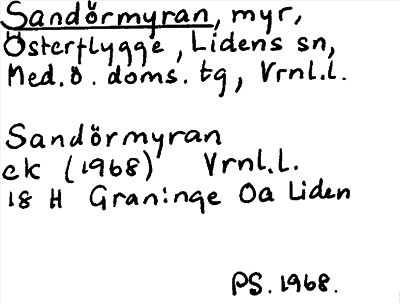 Sandörmyran, myr,
Österflygge, Lidens sn,
Med.ö. doms. tg, Vrnl.l.
Sandörmyran
ek (1968) Vrnl.l.
18 H Graninge Oa Liden
PS. 1968.